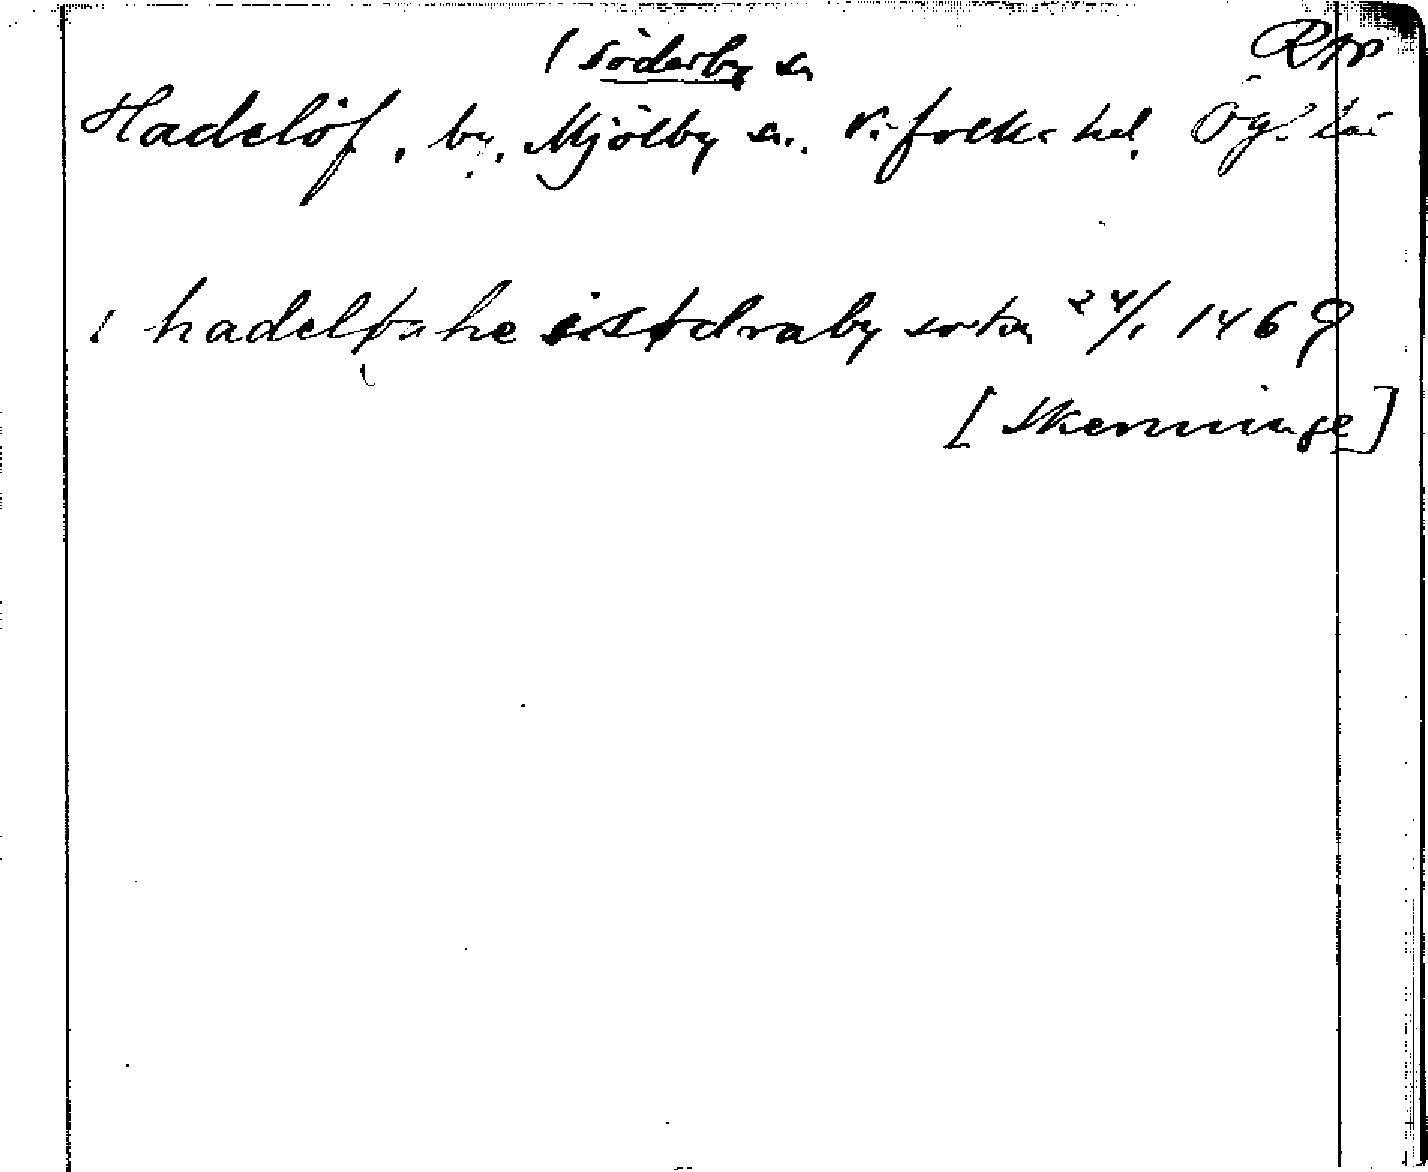 ( Söderby sn Rpp
Hadelöf, by, Mjölby sn. Vifolka hd. Ög. län
i hadeløsshe i stødraby sokn 24/1 1469
[Skenninge]